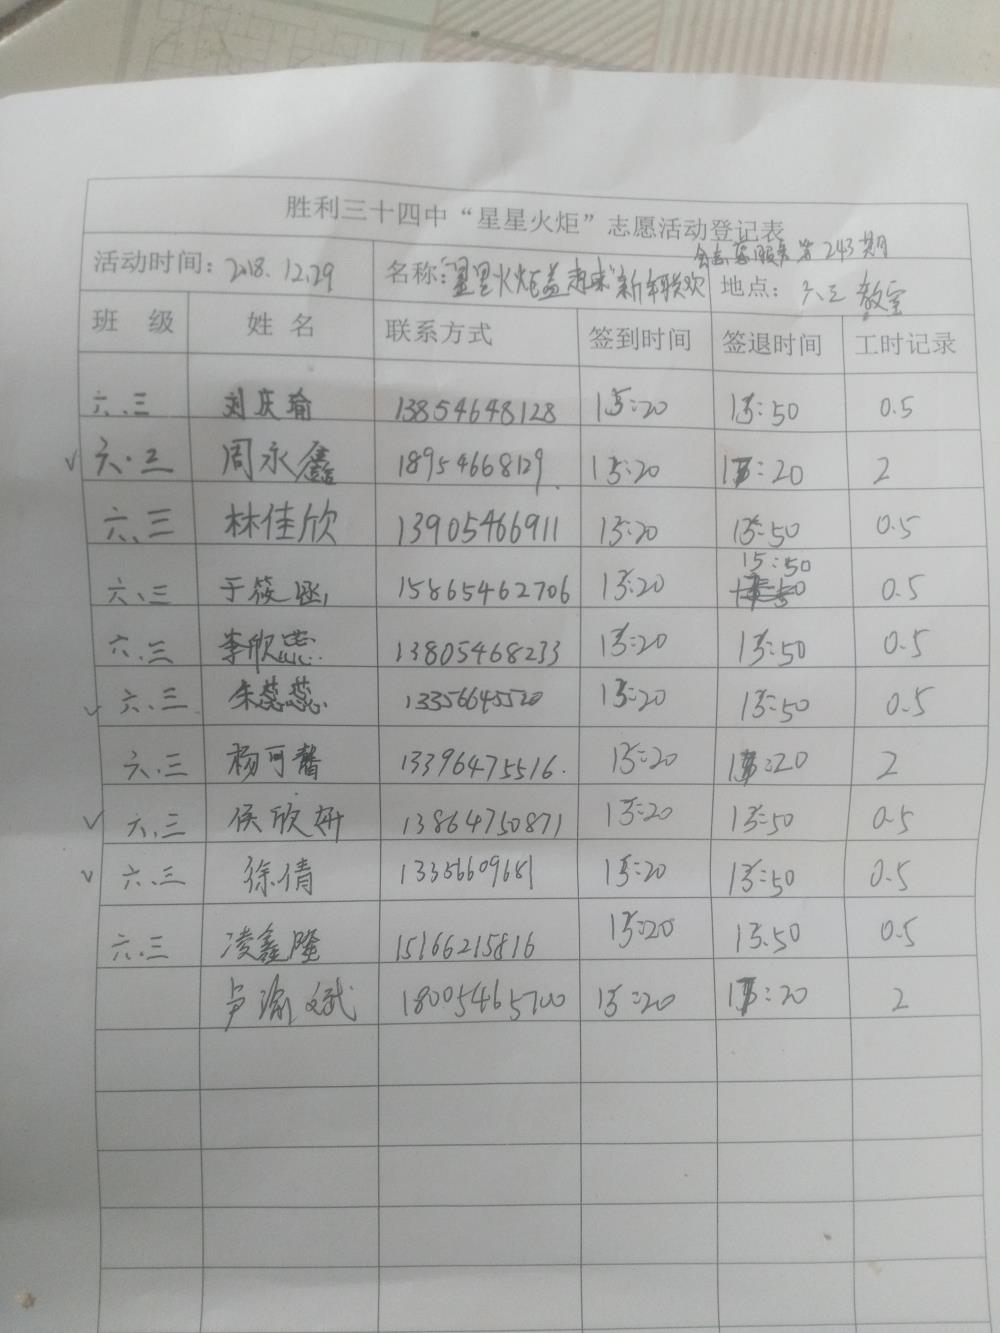 胜利三十四中“星星火炬”志愿活动登记表
第243期
活动时间：2018.12.29 名称：“星星火炬益起来”新年联欢 地点：六三教室
班 级 姓 名 联系方式 签到时间 签退时间 工时记录
六.三 刘庆瑜 13854648128 15:20 15:50 0.5
√ 六.三 周永鑫 18954668129 15:20 17:20 2
六.三 林佳欣 13905466911 15:20 15:50 0.5
15:50
六.三 于筱涵 15865462706 15:20 0.5
六.三 李欣蕊 13805468233 15:20 15:50 0.5
√ 六.三 朱蕊蕊 13356645520 15:20 15:50 0.5
六.三 杨可馨 13396475516. 15:20 17:20 2
√ 六.三 侯欣妍 13864750871 15:20 15:50 0.5
√ 六.三 徐倩 13356609681 15:20 15:50 0.5
六.三 凌鑫隆 15166215816 15:20 15.50 0.5
18005465700 15:20 17:20 2